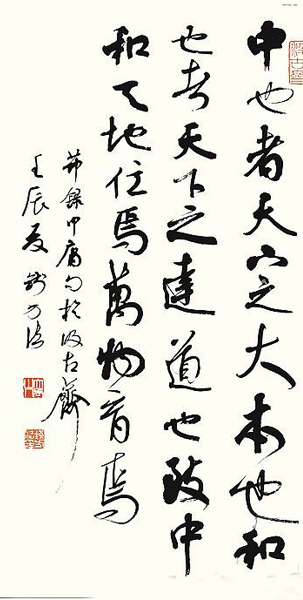 中也者天下之大本也和
也者天下之達道也致中
和天地位焉萬物育焉
節錄中庸句於汲古齋
壬辰夏